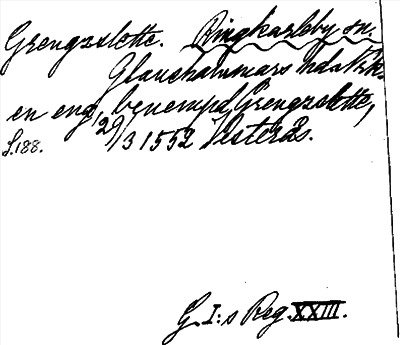 Grengzslette. Ringkarleby sn.
Glanshammars hd
en eng, benempd Grengzslette,
29/3 1552 Vesterås.
S.188.
G. I:s Reg. XXIII.